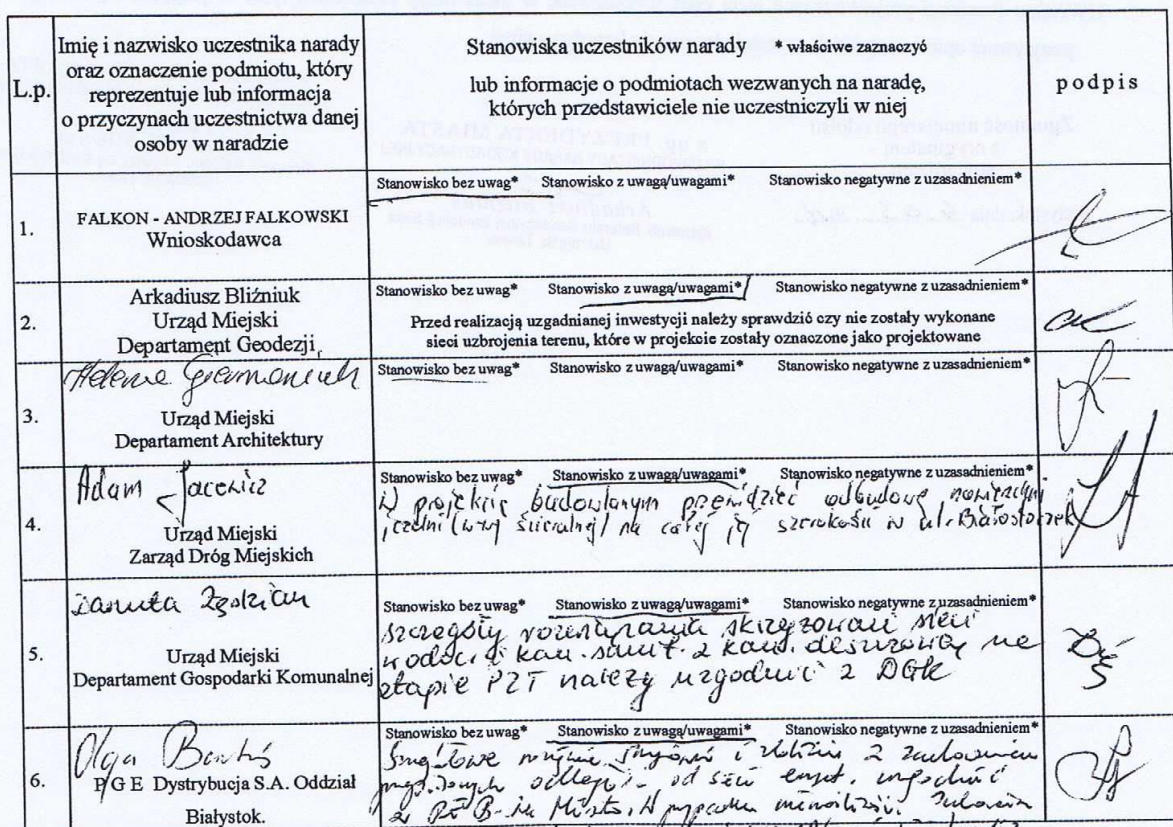 L.p.
Imię i nazwisko uczestnika narady
oraz oznaczenie podmiotu, który
reprezentuje lub informacja
o przyczynach uczestnictwa danej
osoby w naradzie
Stanowiska uczestników narady * właściwe zaznaczyć
lub informacje o podmiotach wezwanych na naradę,
których przedstawiciele nie uczestniczyli w niej
podpis
1.
FALKON - ANDRZEJ FALKOWSKI
Wnioskodawca
Stanowisko bez uwag* Stanowisko z uwagą/uwagami* Stanowisko negatywne z uzasadnieniem*
2.
Arkadiusz Bliźniuk
Urząd Miejski
Departament Geodezji
Stanowisko bez uwag* Stanowisko z uwagą/uwagami* Stanowisko negatywne z uzasadnieniem*
Przed realizacją uzgadnianej inwestycji należy sprawdzić czy nie zostały wykonane
sieci uzbrojenia terenu, które w projekcie zostały oznaczone jako projektowane
3.
Urząd Miejski
Departament Architektury
Stanowisko bez uwag* Stanowisko z uwagą/uwagami* Stanowisko negatywne z uzasadnieniem*
4.
Adam
Urząd Miejski
Zarząd Dróg Miejskich
Stanowisko bez uwag* Stanowisko z uwagą/uwagami* Stanowisko negatywne z uzasadnieniem*
W projekcie budowlanym przewidzieć odbudowę nawierzchni
jezdni (w-wy ścieralnej) na całej jej szerokości w ul.
5.
Danuta
Urząd Miejski
Departament Gospodarki Komunalnej
Stanowisko bez uwag* Stanowisko z uwagą/uwagami* Stanowisko negatywne z uzasadnieniem*
szczegóły rozwiązania skrzyżowań sieci
wodoc. i kan. sanit. z kan. deszczową na
etapie PZT należy uzgodnić z DGK
6.
Olga
P G E Dystrybucja S.A. Oddział
Białystok.
Stanowisko bez uwag* Stanowisko z uwagą/uwagami* Stanowisko negatywne z uzasadnieniem*
i zbliżenia z zachowaniem
od sieci uzgodnić